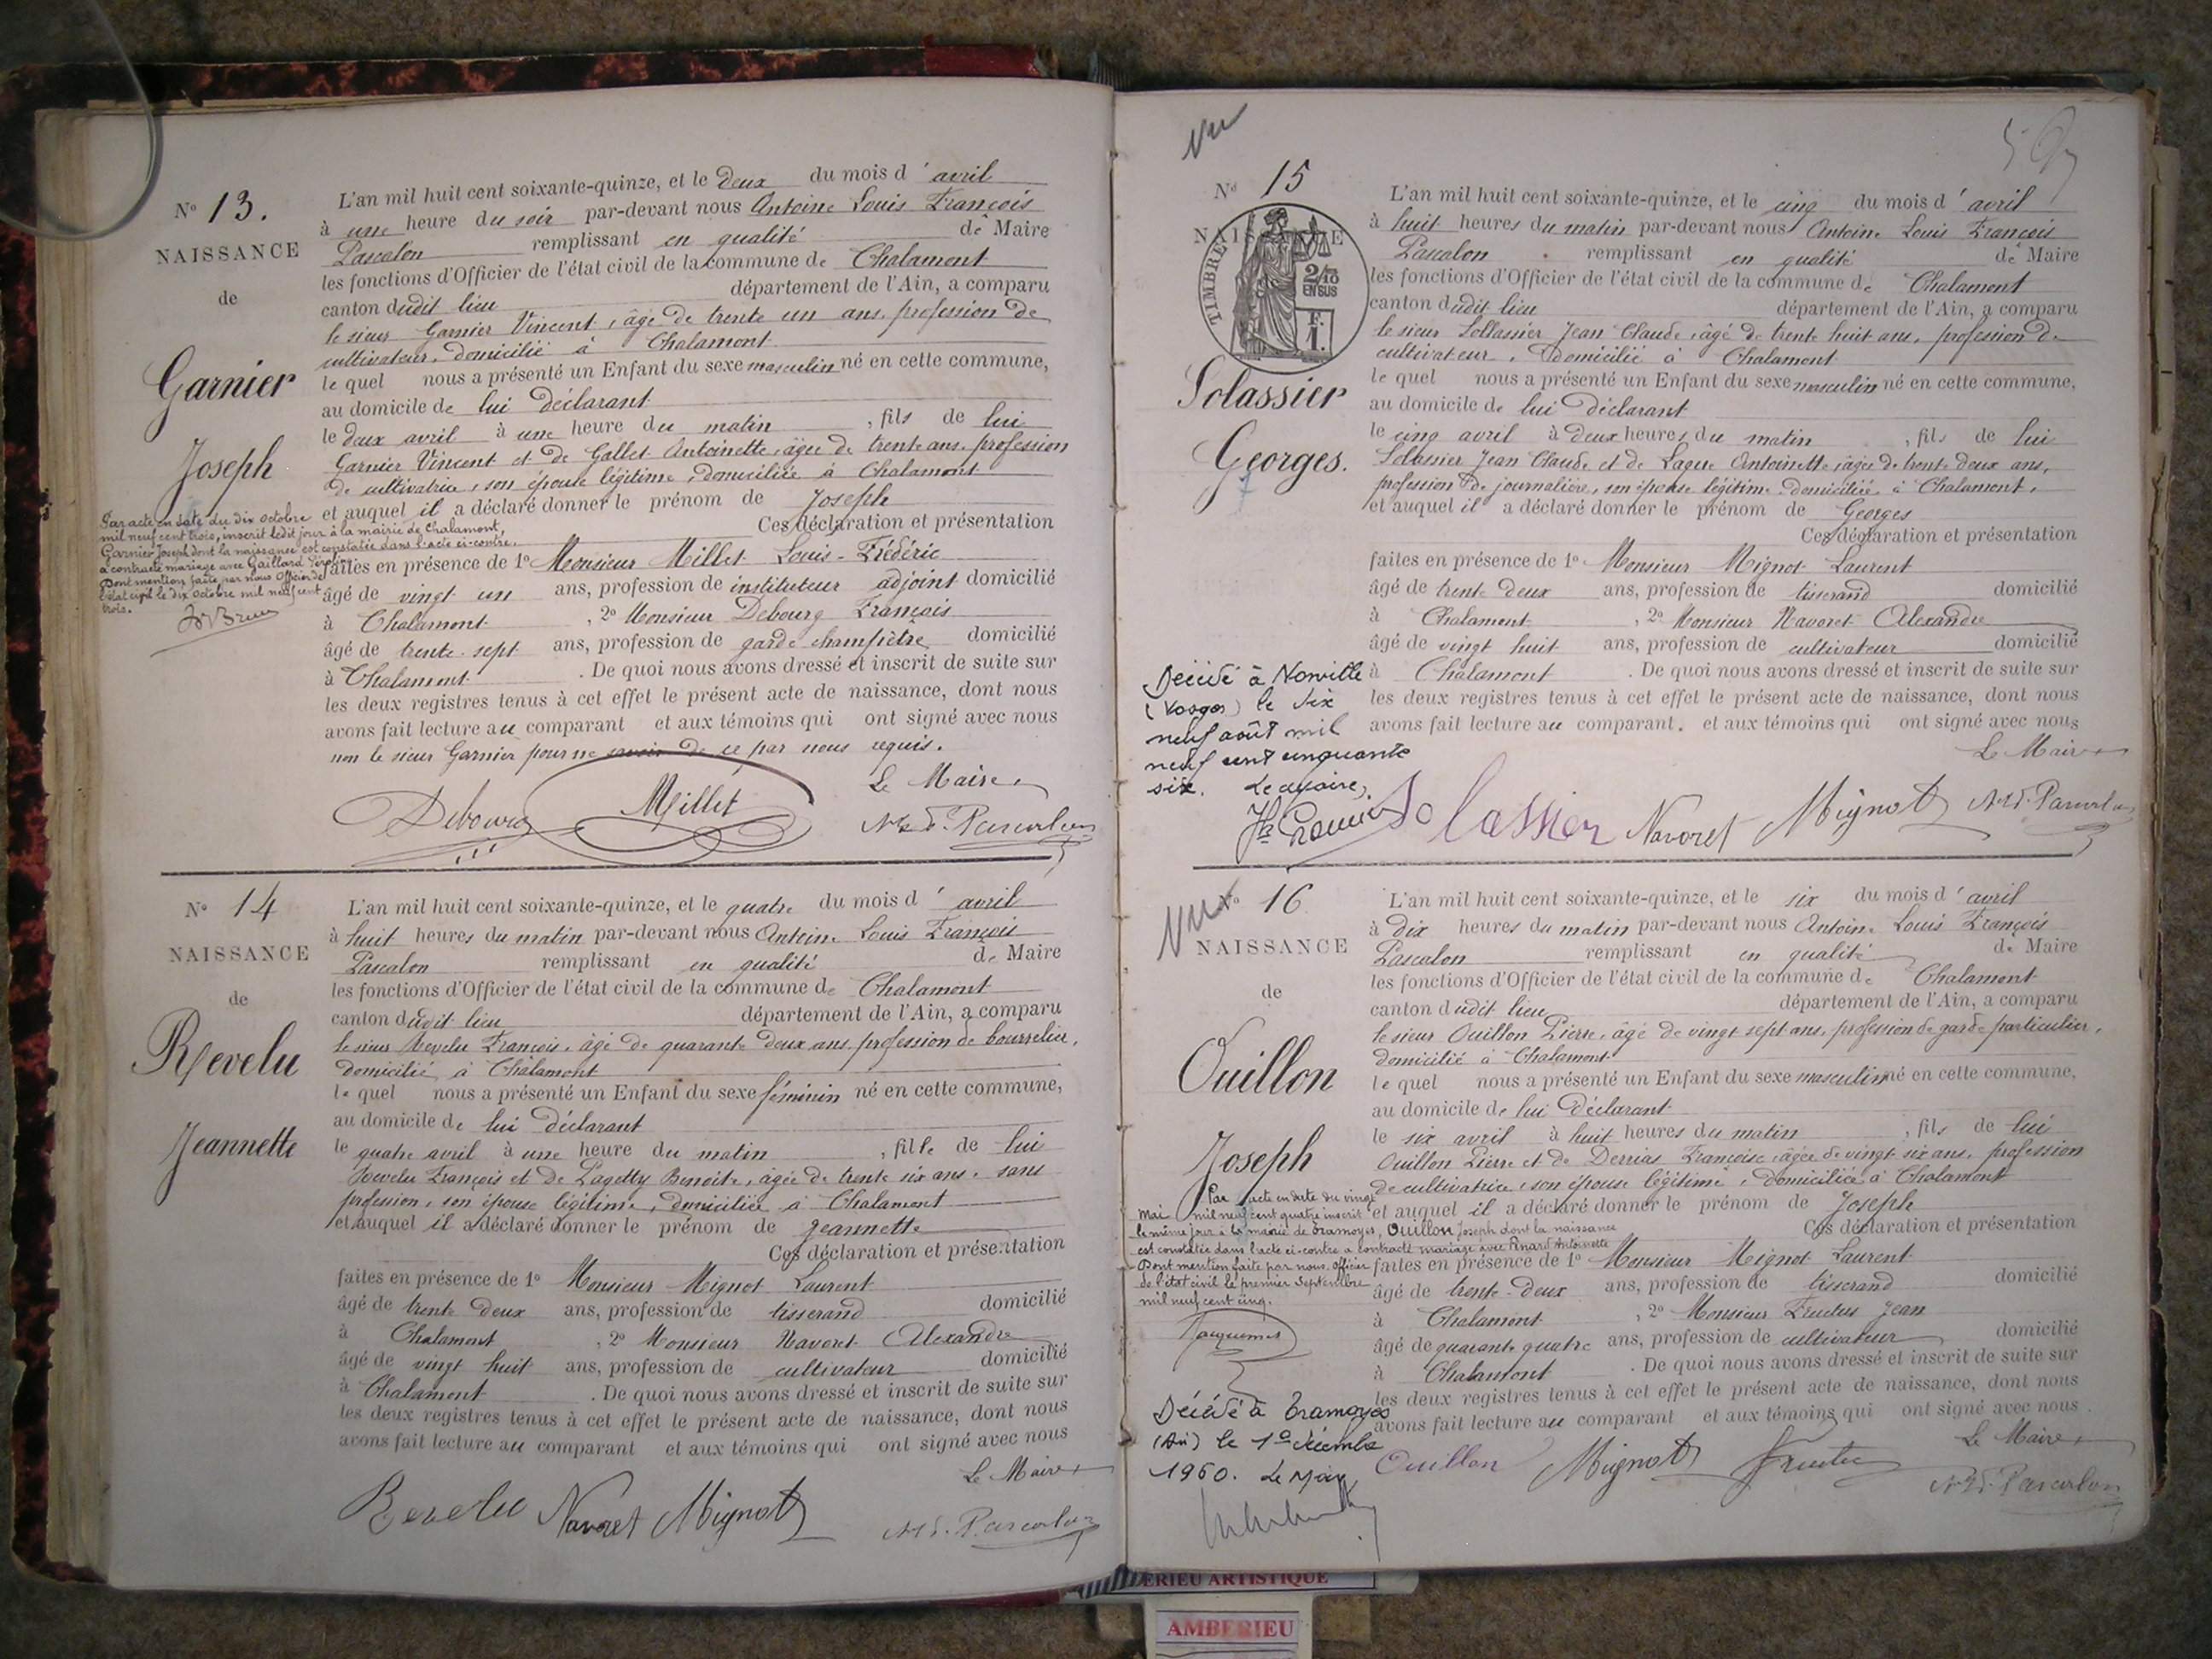 N° 13.
NAISSANCE
de
Garnier
Joseph
Par acte en date du dix octobre
mil neuf cent trois, inscrit ledit jour à la mairie de Chalamont,
Garnier Joseph dont la naissance est constatée dans l'acte ci-contre,
a contracté mariage avec Gaillard
Dont mention faite par nous Officier de
l'état civil le dix octobre mil neuf cent
trois.
L'an mil huit cent soixante-quinze, et le deux du mois d'avril
à une heure du soir par-devant nous Antoine Louis François
Pascalon remplissant en qualité de Maire
les fonctions d'Officier de l'état civil de la commune de Chalamont
canton dudit lieu département de l'Ain, a comparu
le sieur Garnier Vincent, âgé de trente un ans, profession de
cultivateur, domicilié à Chalamont
lequel nous a présenté un Enfant du sexe masculin né en cette commune,
au domicile de lui déclarant
le deux avril à une heure du matin, fils de lui
Garnier Vincent et de Gallet Antoinette, âgée de trente ans, profession
de cultivatrice, son épouse légitime, domiciliée à Chalamont
et auquel il a déclaré donner le prénom de Joseph
Ces déclaration et présentation
faites en présence de 1° Monsieur Millet Louis-Frédéric
âgé de vingt un ans, profession de instituteur adjoint domicilié
à Chalamont, 2° Monsieur Debourg François
âgé de trente-sept ans, profession de garde champêtre domicilié
à Chalamont. De quoi nous avons dressé et inscrit de suite sur
les deux registres tenus à cet effet le présent acte de naissance, dont nous
avons fait lecture au comparant et aux témoins qui ont signé avec nous
non le sieur Garnier pour ne savoir de ce par nous requis.
Le Maire,
Debourg Millet A. L. F. Pascalon
N° 14
NAISSANCE
de
Revelu
Jeannette
L'an mil huit cent soixante-quinze, et le quatre du mois d'avril
à huit heures du matin par-devant nous Antoine Louis François
Pascalon remplissant en qualité de Maire
les fonctions d'Officier de l'état civil de la commune de Chalamont
canton dudit lieu département de l'Ain, a comparu
le sieur Revelu François, âgé de quarante deux ans, profession de bourrelier,
domicilié à Chalamont
lequel nous a présenté un Enfant du sexe féminin né en cette commune,
au domicile de lui déclarant
le quatre avril à une heure du matin, fille de lui
Revelu François et de Lagetty Benoite, âgée de trente six ans, sans
profession, son épouse légitime, domiciliée à Chalamont
et auquel il a déclaré donner le prénom de Jeannette
Ces déclaration et présentation
faites en présence de 1° Monsieur Mignot Laurent
âgé de trente deux ans, profession de tisserand domicilié
à Chalamont, 2° Monsieur Navoret Alexandre
âgé de vingt huit ans, profession de cultivateur domicilié
à Chalamont. De quoi nous avons dressé et inscrit de suite sur
les deux registres tenus à cet effet le présent acte de naissance, dont nous
avons fait lecture au comparant et aux témoins qui ont signé avec nous
Le Maire
Revelu Navoret Mignot A. L. F. Pascalon
vu
N° 15
NAISSANCE
TIMBRE
2/10
EN SUS
F.
1.
Solassier
Georges.
Décédé à Nonville
(Vosges) le dix
neuf août mil
neuf cent cinquante
six. Le Maire,
L'an mil huit cent soixante-quinze, et le cinq du mois d'avril
à huit heures du matin par-devant nous Antoine Louis François
Pascalon remplissant en qualité de Maire
les fonctions d'Officier de l'état civil de la commune de Chalamont
canton dudit lieu département de l'Ain, a comparu
le sieur Sollassier Jean Claude, âgé de trente huit ans, profession de
cultivateur, domicilié à Chalamont
lequel nous a présenté un Enfant du sexe masculin né en cette commune,
au domicile de lui déclarant
le cinq avril à deux heures du matin, fils de lui
Solassier Jean Claude et de Antoinette, âgée de trente deux ans,
profession de journalière, son épouse légitime, domiciliée à Chalamont,
et auquel il a déclaré donner le prénom de Georges
Ces déclaration et présentation
faites en présence de 1° Monsieur Mignot Laurent
âgé de trente deux ans, profession de tisserand domicilié
à Chalamont, 2° Monsieur Navoret Alexandre
âgé de vingt huit ans, profession de cultivateur domicilié
à Chalamont. De quoi nous avons dressé et inscrit de suite sur
les deux registres tenus à cet effet le présent acte de naissance, dont nous
avons fait lecture au comparant. et aux témoins qui ont signé avec nous
Le Maire
Solassier Navoret Mignot A. L. F. Pascalon
vu
N° 16
NAISSANCE
de
Ouillon
Joseph
Par acte en date du vingt
Mai mil neuf cent quatre inscrit
le même jour à la mairie de Tramoyes, Ouillon Joseph dont la naissance
est constatée dans l'acte ci-contre a contracté mariage avec Penard Antoinette
Dont mention faite par nous officier
de l'état civil le premier Septembre
mil neuf cent cinq.
Décédé à Tramoyes
(Ain) le 1er décembre
1960. Le Maire,
L'an mil huit cent soixante-quinze, et le six du mois d'avril
à dix heures du matin par-devant nous Antoine Louis François
Pascalon remplissant en qualité de Maire
les fonctions d'Officier de l'état civil de la commune de Chalamont
canton dudit lieu département de l'Ain, a comparu
le sieur Ouillon Pierre, âgé de vingt sept ans, profession de garde particulier,
domicilié à Chalamont
lequel nous a présenté un Enfant du sexe masculin né en cette commune,
au domicile de lui déclarant
le six avril à huit heures du matin, fils de lui
Ouillon Pierre et de Derrias Françoise, âgée de vingt six ans, profession
de cultivatrice, son épouse légitime, domiciliée à Chalamont
et auquel il a déclaré donner le prénom de Joseph
Ces déclaration et présentation
faites en présence de 1° Monsieur Mignot Laurent
âgé de trente-deux ans, profession de tisserand domicilié
à Chalamont, 2° Monsieur Fructus Jean
âgé de quarante quatre ans, profession de cultivateur domicilié
à Chalamont. De quoi nous avons dressé et inscrit de suite sur
les deux registres tenus à cet effet le présent acte de naissance, dont nous
avons fait lecture au comparant et aux témoins qui ont signé avec nous
Le Maire
Ouillon Mignot Fructus A. L. F. Pascalon
ERIEU ARTISTIQUE
AMBERIEU